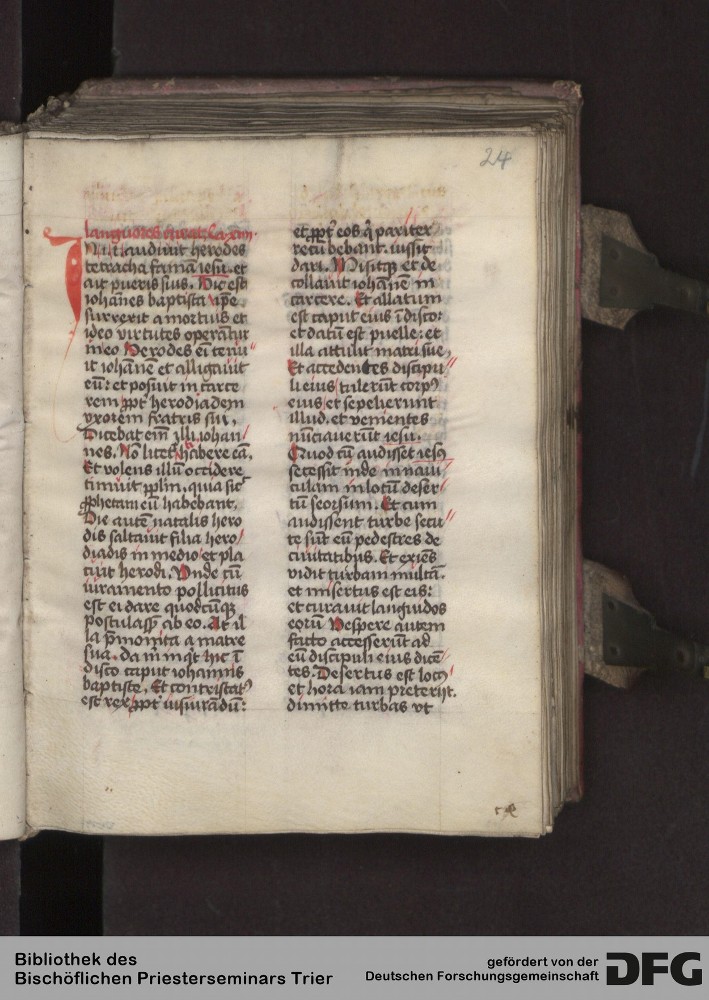 24
languores curat. ca. xiiii.
In illo audiuit herodes
tetracha famā iesu. et
ait pueris suis. Hic est
iohānes baptista ipe
surrexit a mortuis et
ideo virtutes operātur
in eo Herodes em̄ tenu
it iohānē et alligauit
eū: et posuit in carce
rem ꝓpt herodiadem
vxorem fratris sui.
Dicebat em̄ illi iohan
nes. Nō licet habere eā.
Et volens illū occidere
timuit pplm. quia sic
ꝓphetam eū habebant.
Die autē natalis hero
dis saltauit filia hero
diadis in medio et pla
cuit herodi. Vnde cū
iuramento pollicitus
est ei dare quodcūqꝫ
postulass; ab eo. At il
la p̄monita a matre
sua. da m̄ inqt hic ī
disco caput iohannis
baptiste. Et contristatꝰ
est rex ꝓpt iusiurādū:
et ꝓpt eos q̄ pariter
recūbebant. iussit
dari. Misitqꝫ et de
collauit iohānē in
carcere. Et allatum
est caput eius ī disco:
et datū est puelle: et
illa attulit matri sue,
Et accedentes discipu
li eius tulerūt corpꝰ
eius et sepelierunt
illud. et venientes
nūciauerūt iesu.
Quod cū audisset iesꝰ
secessit inde in naui
culam in locū deser
tū seorsum. Et cum
audissent turbe secu
te sūt eū pedestres de
ciuitatibus. Et exiēs
vidit turbam multā.
et misertus est eis:
et curauit languidos
eorū Vespere autem
facto accesserūt ad
eū discipuli eius dicē
tes. Desertus est locꝰ
et hora iam preteriit.
dimitte turbas vt
Bibliothek des
Bischöflichen Priesterseminars Trier
gefördert von der
Deutschen Forschungsgemeinschaft
DFG